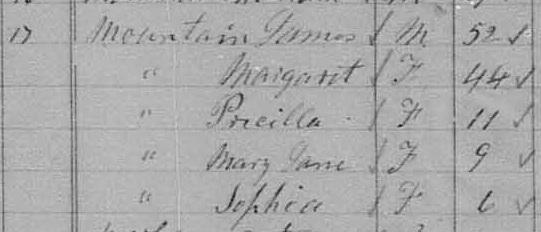 17 Mountain James / M 52 ✓
" Margaret / F 44 ✓
" Pricilla / F 11 ✓
" Mary Jane / F 9 ✓
" Sophia / F 6 ✓